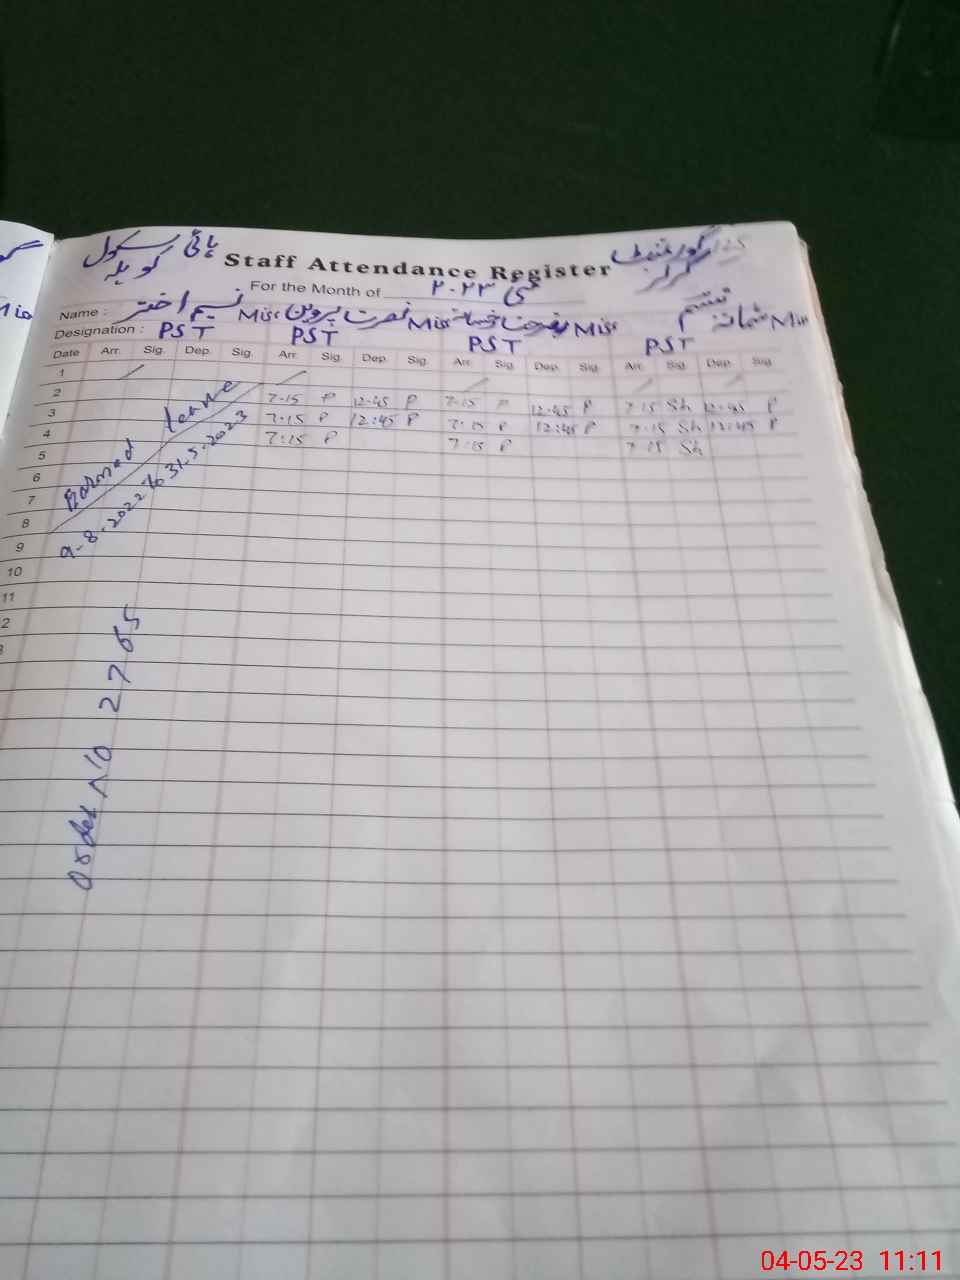 گورنمنٹ گرلز ہائی سکول کوٹلہ
Staff Attendance Register
For the Month of مئی ۲۰۲۳
Name : نسیم اختر Miss نصرت پروین Miss Miss شبانہ تبسم Miss
Designation : PST PST PST PST
Date Arr. Sig. Dep. Sig. Arr. Sig. Dep. Sig. Arr. Sig. Dep. Sig. Arr. Sig. Dep. Sig.
1
2 7-15 P 12-45 P 7-15 P 12-45 P 7-15 Sh 12-45 P
3 7-15 P 12:45 P 7-15 P 12:45 P 7-15 Sh 12:45 P
4 7:15 P 7:15 P 7-15 Sh
5
6
7
8
9
10
11
2
Earned leave
9-8-2022 to 31.5.2023
Order No 2765
04-05-23 11:11